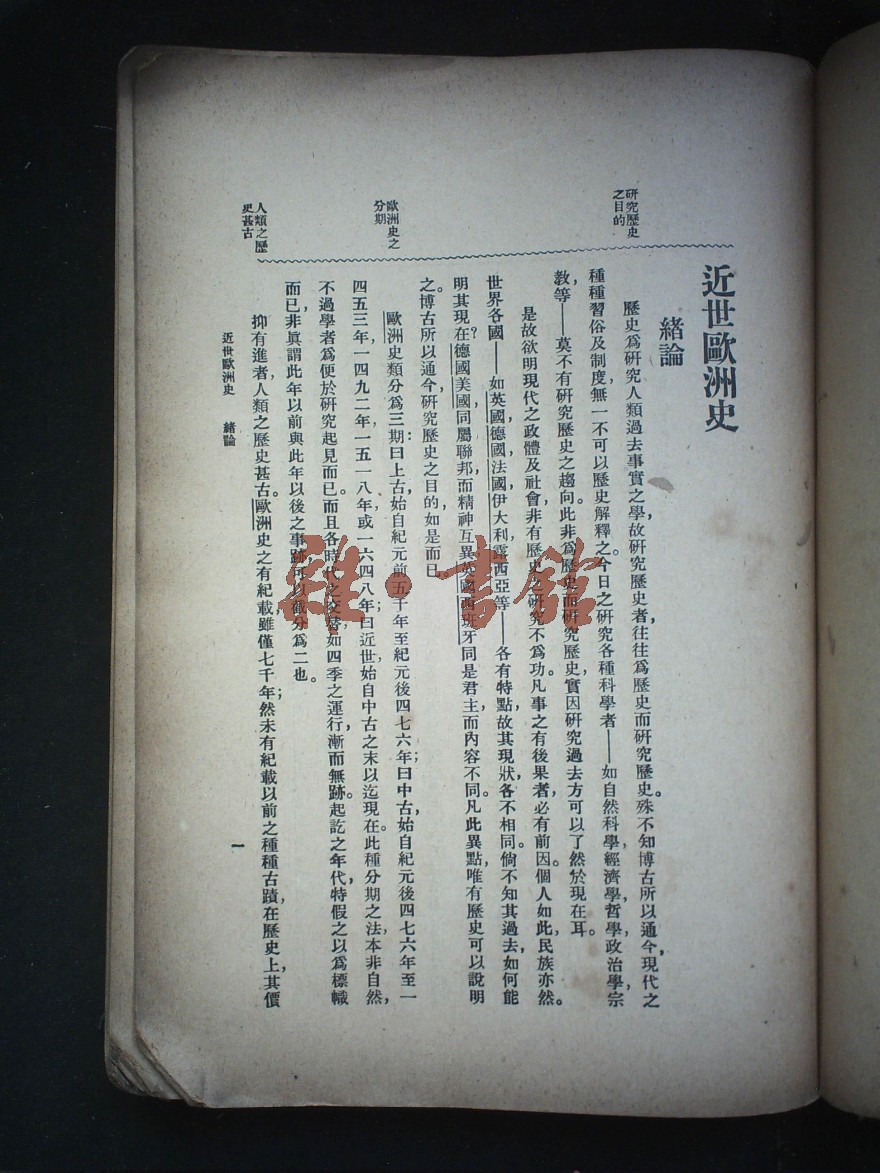 近世歐洲史
緒論
研究歷史
之目的
歷史爲研究人類過去事實之學，故研究歷史者，往往爲歷史而研究歷史。殊不知博古所以通今，現代之
種種習俗及制度，無一不可以歷史解釋之。今日之研究各種科學者——如自然科學，經濟學，哲學，政治學，宗
敎等——莫不有研究歷史之趨向。此非爲歷史而研究歷史，實因研究過去，方可以了然於現在耳。
是故欲明現代之政體及社會，非有歷史之研究不爲功。凡事之有後果者，必有前因。個人如此，民族亦然。
世界各國——如英國，德國，法國，伊大利，露西亞等——各有特點，故其現狀，各不相同。倘不知其過去，如何能
明其現在？德國美國，同屬聯邦，而精神互異，英國西班牙同是君主，而內容不同。凡此異點，唯有歷史可以說明
之。博古所以通今，研究歷史之目的，如是而已。
歐洲史之
分期
歐洲史類分爲三期：曰上古，始自紀元前五千年至紀元後四七六年；曰中古，始自紀元後四七六年至一
四五三年，一四九二年，一五一八年，或一六四八年；曰近世，始自中古之末以迄現在。此種分期之法，本非自然，
不過學者爲便於研究起見而已。而且各時代之交替，如四季之運行，漸而無跡。起訖之年代，特假之以爲標幟
而已，非眞謂此年以前與此年以後之事跡，可以截分爲二也。
人類之歷
史甚古
抑有進者，人類之歷史甚古。歐洲史之有紀載，雖僅七千年；然未有紀載以前之種種古蹟，在歷史上，其價
近世歐洲史 緒論
一
雜·書館